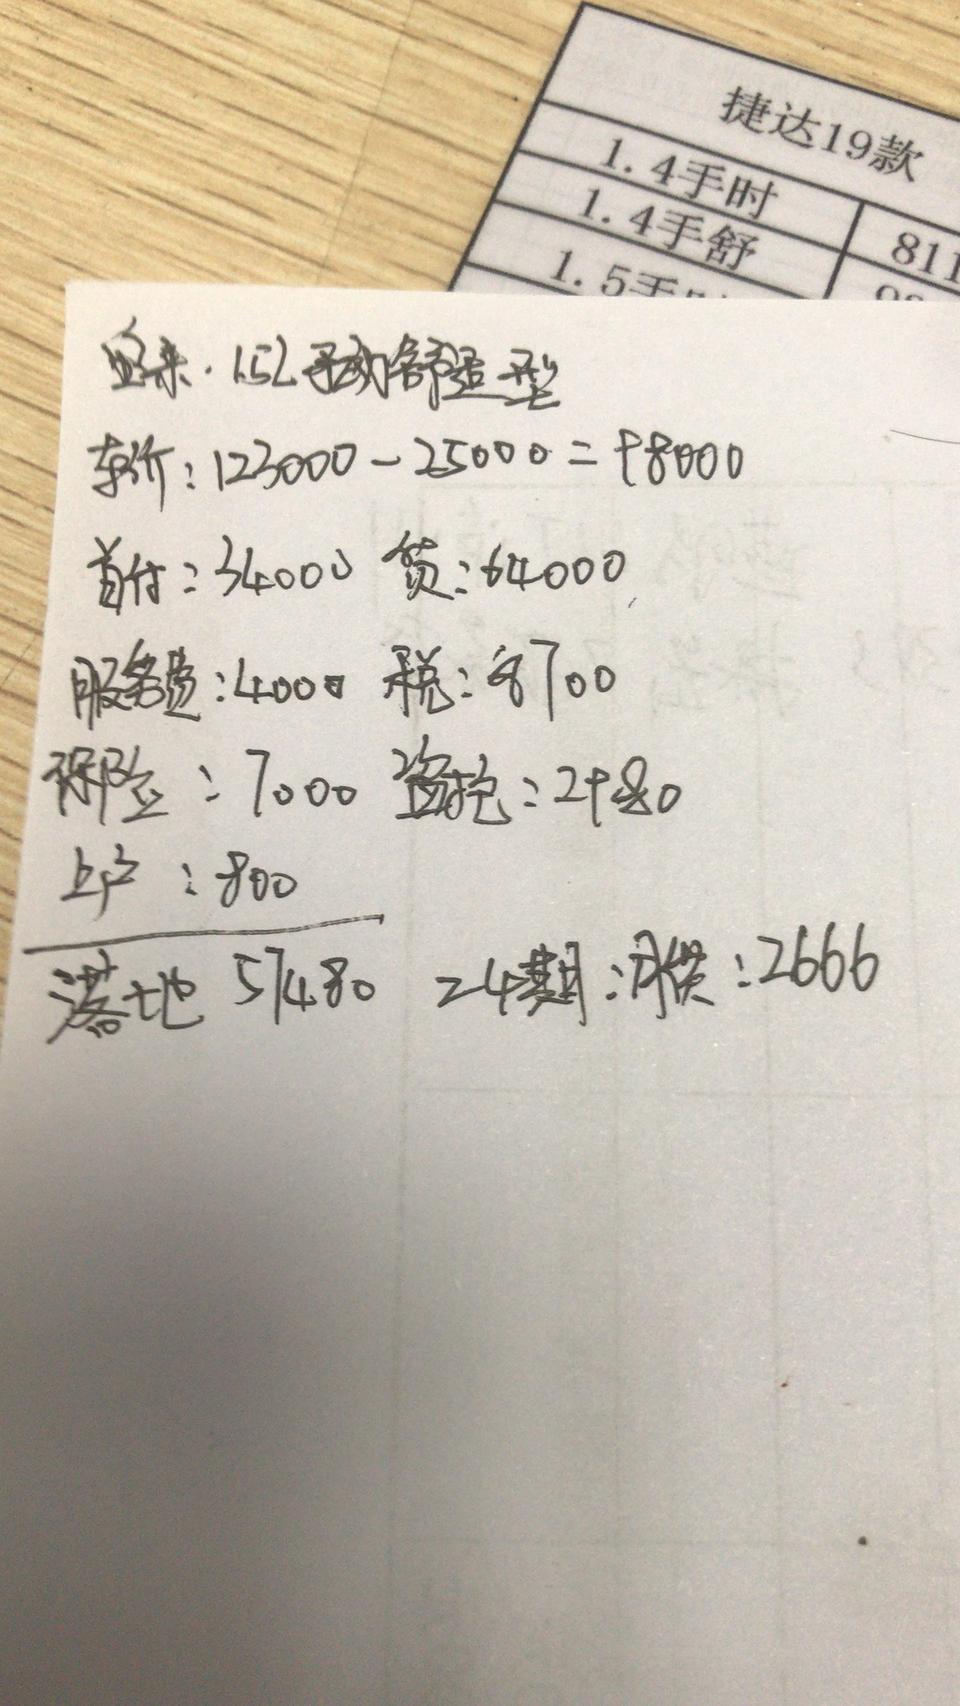 捷达19款
1.4手时 811
1.4手舒
1.5手
宝来·1.5L手动舒适型
车价:123000-25000=98000
首付:34000 贷:64000
服务费:4000 税:8700
保险:7000 盗抢:2980
上户:800
落地 57480 24期:月供:2666